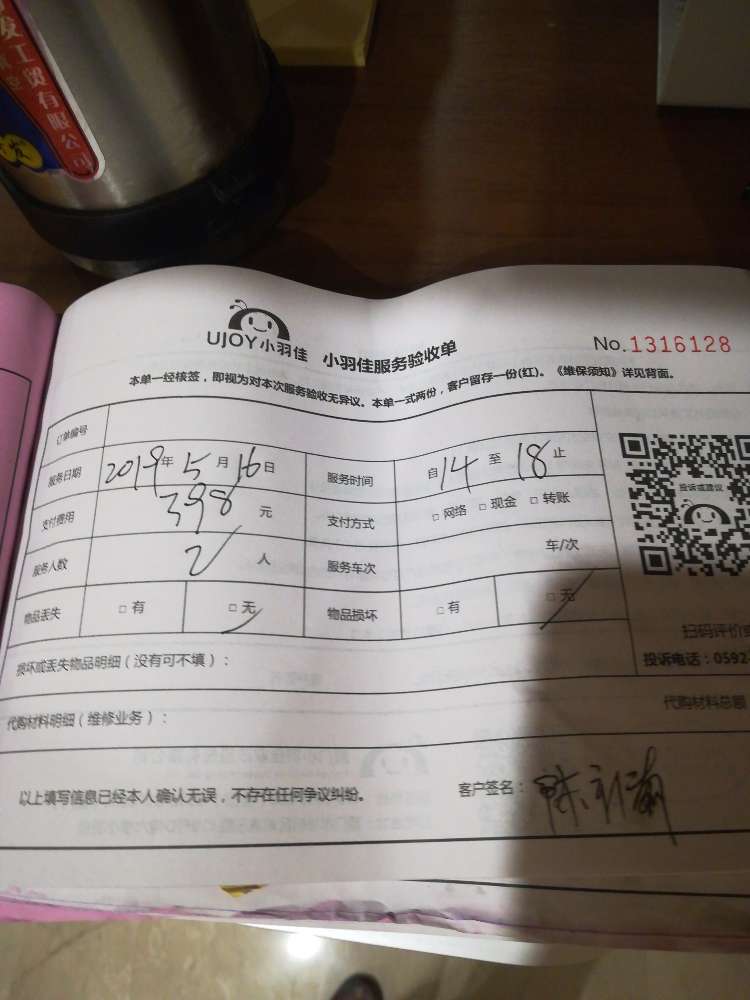 发工贸有限公司
UJOY小羽佳 小羽佳服务验收单 No.1316128
本单一经核签，即视为对本次服务验收无异议。本单一式两份，客户留存一份(红)。《维保须知》详见背面。
订单编号
服务日期 2019年5月16日 服务时间 自14至18止
支付费用 398元 支付方式 □网络 □现金 □转账
服务人数 2人 服务车次 车/次
物品丢失 □有 □无 物品损坏 □有 □无
投诉或建议
扫码评价
投诉电话：0592
损坏或丢失物品明细（没有可不填）：
代购材料明细（维修业务）： 代购材料总额
以上填写信息已经本人确认无误，不存在任何争议纠纷。 客户签名：